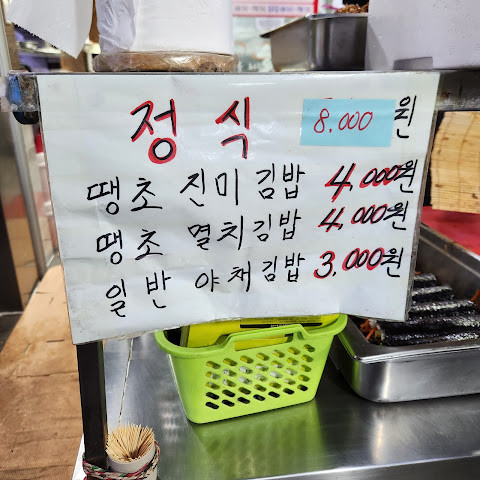 정식 8.000원
땡초 진미김밥 4,000원
땡초 멸치김밥 4,000원
일반 야채김밥 3,000원